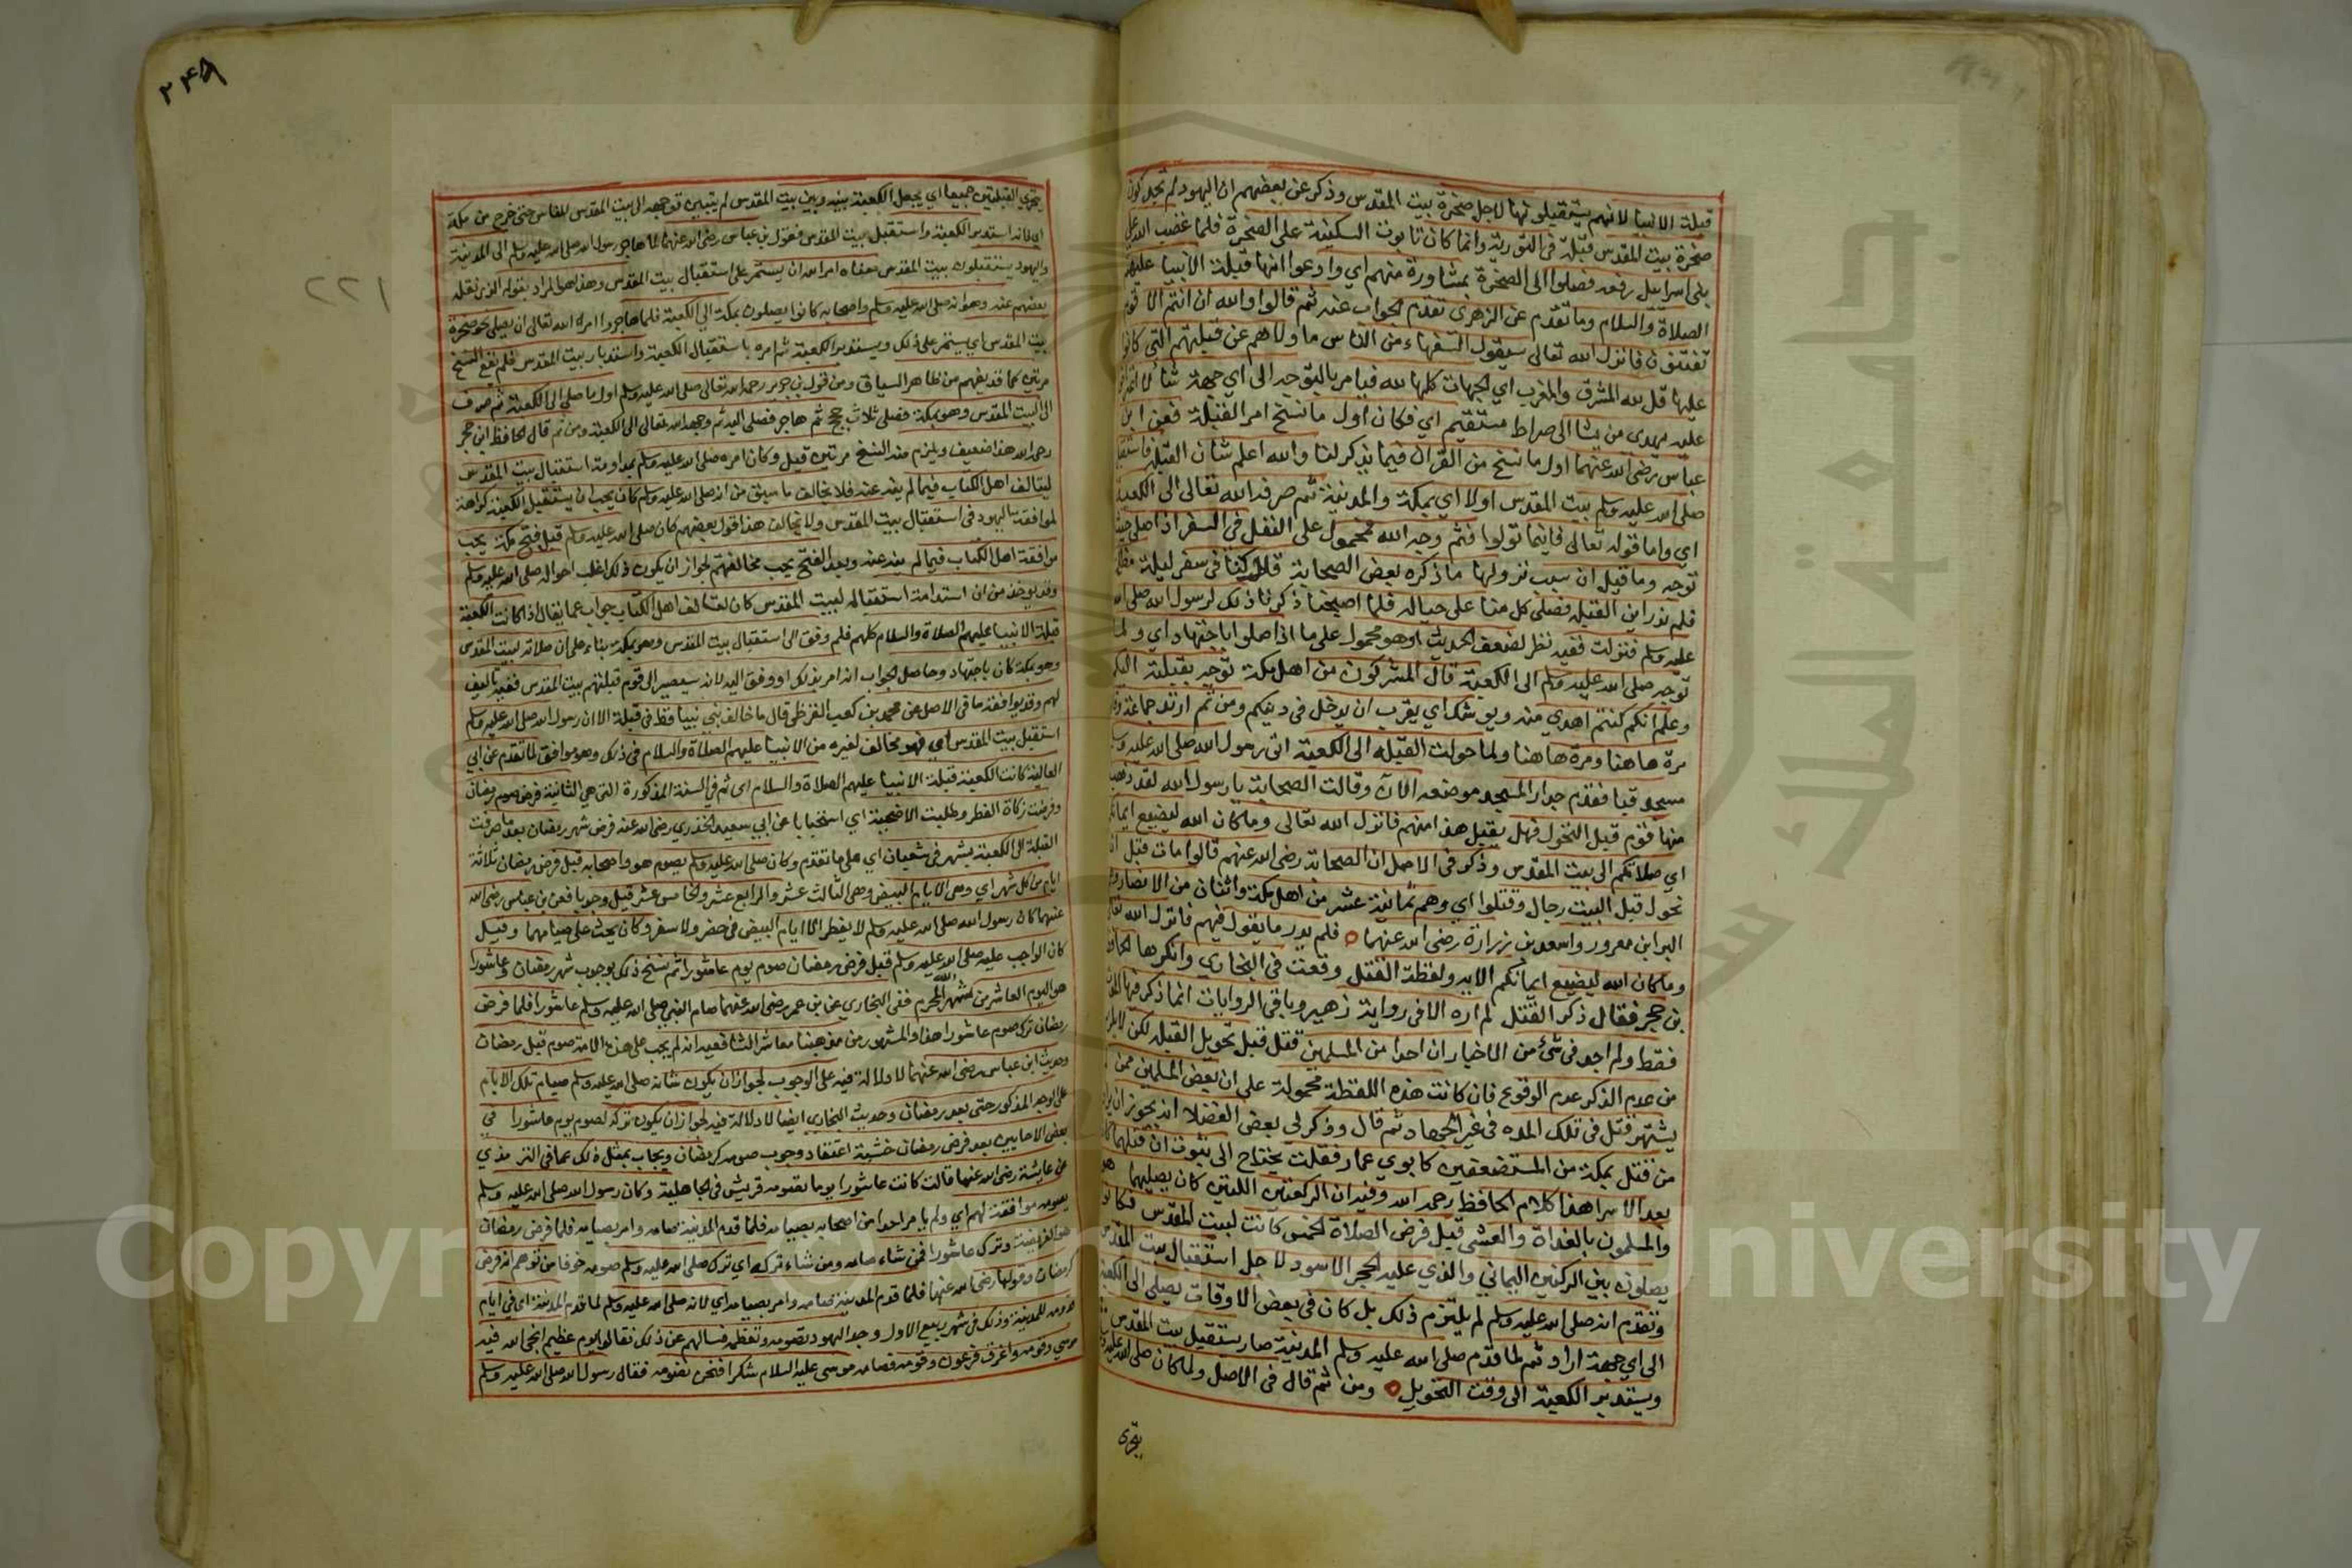 قبلة الانبيا لانهم يستقبلونها لاجل صخرة بيت المقدس وذكر عن بعضهم ان اليهود لم تجد كون
صخرة بيت المقدس قبلة في التورية وانما كان تابوت السكينة على الصخرة فلما غضب الله على
بنى اسرايل رفعه فصلوا الى الصخرة بمشاورة منهم اي وادعوا انها قبلة الانبيا عليهم
الصلاة والسلام وما تقدم عن الزهرى تقدم الجواب عنه ثم قالوا والله ان انتم الا قوم
تفتنون فانزل الله تعالى سيقول السفهاء من الناس ما ولاهم عن قبلتهم التى كانوا
عليها قل لله المشرق والمغرب اي الجهات كلها لله فيامر بالتوجه الى اي جهة شا لا اعتراض
عليه يهدي من يشا الى صراط مستقيم اي فكان اول ما نسخ امر القبلة فعن ابن
عباس رضى الله عنهما اول ما نسخ من القران فيما يذكر لنا والله اعلم شان القبلة فاستقبل
صلى الله عليه وسلم بيت المقدس اولا اي بمكة والمدينة ثم صرفه الله تعالى الى الكعبة
اي واما قوله تعالى فاينما تولوا فثم وجه الله فمحمول على النفل في السفر اذا صلى حيث
توجه وما قيل ان سبب نزولها ما ذكره بعض الصحابة قال كنا في سفر ليلة مظلمة
فلم ندر اين القبلة فصلى كل منا على حياله فلما اصبحنا ذكرنا ذلك لرسول الله صلى الله
عليه وسلم فنزلت ففيه نظر لضعف الحديث او هو محمول على ما اذا صلوا باجتهاد اي ولما
توجه صلى الله عليه وسلم الى الكعبة قال المشركون من اهل مكة توجه بقبلته اليكم
وعلم انكم كنتم اهدى منه ويوشك اي يقرب ان يدخل في دينكم ومن ثم ارتد جماعة وقالوا
مرة هاهنا ومرة هاهنا ولما حولت القبلة الى الكعبة اتى رسول الله صلى الله عليه وسلم
مسجد قبا فقدم جدار المسجد موضعه الآن وقالت الصحابة يا رسول الله لقد ذهب
منها قوم قبل التحول فهل يقبل هذا منهم فانزل الله تعالى وما كان الله ليضيع ايمانكم
اي صلاتكم الى بيت المقدس وذكر في الاصل ان الصحابة رضى الله عنهم قالوا مات قبل ان
تحول قبل البيت رجال وقتلوا اي وهم ثمانية عشر من اهل مكة واثنان من الانصار وهما
البرا ابن معرور واسعد بن زرارة رضى الله عنهما فلم يدر ما يقول فيهم فانزل الله تعالى
وما كان الله ليضيع ايمانكم الاية ولفظة القتل وقعت في البخاري وانكرها الحافظ
بن حجر فقال ذكر القتل لم اره الا في رواية زهير وباقي الروايات انما ذكر فيها الموت
فقط ولم اجد في شئ من الاخبار ان احدا من المسلمين قتل قبل تحويل القبلة لكن لا يلزم
من عدم الذكر عدم الوقوع فان كانت هذه اللفظة محمولة على ان بعض المسلمين ممن لم
يشتهر قتل في تلك المده في غير الجهاد ثم قال وذكر لي بعض الفضلا انه يجوز ان يراد
من قتل بمكة من المستضعفين كابوي عمار فقلت يحتاج الى ثبوت ان قتلهما كان
بعد الاسرا هذا كلام الحافظ رحمه الله وفيه ان الركعتين اللتين كان يصليهما هو
والمسلمون بالغداة والعشى قبل فرض الصلاة الخمس كانت لبيت المقدس فكانوا
يصلون بين الركنين اليماني والذي عليه الحجر الاسود لاجل استقبال بيت المقدس
وتقدم انه صلى الله عليه وسلم لم يلتزم ذلك بل كان في بعض الاوقات يصلى الى الكعبة
الى اي جهة اراد ثم لما قدم صلى الله عليه وسلم المدينة صار يستقبل بيت المقدس
ويستدبر الكعبة الى وقت التحويل ومن ثم قال في الاصل ولما كان صلى الله عليه وسلم
يتحرى
٢٤٨
٢٢١
يتحرى القبلتين جميعا اي يجعل الكعبة بينه وبين بيت المقدس لم يتبين توجهه الى بيت المقدس للناس حتى خرج من مكة
اي لانه استدبر الكعبة واستقبل بيت المقدس فقول بن عباس رضى الله عنهما لما هاجر رسول الله صلى الله عليه وسلم الى المدينة
واليهود يستقبلون بيت المقدس معناه امره الله ان يستمر على استقبال بيت المقدس وهذا هو المراد بقوله الذي نقله
بعضهم عنه وهو انه صلى الله عليه وسلم واصحابه كانوا يصلون بمكة الى الكعبة فلما هاجروا امره الله تعالى ان يصلى نحو صخرة
بيت المقدس اي يستمر على ذلك ويستدبر الكعبة ثم امره باستقبال الكعبة واستدبار بيت المقدس فلم يقع النسخ
مرتين كما قد يفهم من ظاهر السياق ومن قول بن جرير رحمه الله تعالى صلى الله عليه وسلم اول ما صلى الى الكعبة ثم صرف
الى البيت المقدس وهو بمكة فصلى ثلاث حجج ثم هاجر فصلى اليه ثم وجهه الله تعالى الى الكعبة ومن ثم قال الحافظ ابن حجر
رحمه الله هذا ضعيف ويلزم منه النسخ مرتين قيل وكان امره صلى الله عليه وسلم بمداومة استقبال بيت المقدس
ليتالف اهل الكتاب فيما لم ينه عنه فلا يخالف ما سبق من انه صلى الله عليه وسلم كان يحب ان يستقبل الكعبة كراهة
لموافقة اليهود في استقبال بيت المقدس ولا يخالف هذا قول بعضهم كان صلى الله عليه وسلم قبل فتح مكة يحب
موافقة اهل الكتاب فيما لم ينه عنه وبعد الفتح يحب مخالفتهم لجواز ان يكون ذلك اغلب احواله صلى الله عليه وسلم
وقد يوخذ من ان استدامة استقباله لبيت المقدس كان لتالف اهل الكتاب جواب عما يقال اذا كانت الكعبة
قبلة الانبيا عليهم الصلاة والسلام كلهم فلم وفق الى استقبال بيت المقدس وهو بمكة بناء على ان صلاته لبيت المقدس
وهو بمكة كان باجتهاد وحاصل الجواب انه امر بذلك او وفق اليه لانه سيصير الى قوم قبلتهم بيت المقدس ففيه تاليف
لهم وقد يوافقه ما في الاصل عن محمد بن كعب القرظي قال ما خالف نبي نبيا قط في قبلة الا ان رسول الله صلى الله عليه وسلم
استقبل بيت المقدس اي فهو مخالف لغيره من الانبيا عليهم الصلاة والسلام في ذلك وهو موافق لما تقدم عن ابي
العالية كانت الكعبة قبلة الانبيا عليهم الصلاة والسلام اى ثم في السنة المذكورة التى هي الثانية فرض صوم رمضان
وفرضت زكاة الفطر وطلبت الاضحية اي استحبابا عن ابي سعيد الخدري رضى الله عنه فرض شهر رمضان بعد ما صرفت
القبلة الى الكعبة بشهر في شعبان اي على ما تقدم وكان صلى الله عليه وسلم يصوم هو واصحابه قبل فرض رمضان ثلاثة
ايام من كل شهر اي وهى الايام البيض وهى الثالث عشر والرابع عشر والخامس عشر قيل وجوبا فعن بن عباس رضى الله
عنهما كان رسول الله صلى الله عليه وسلم لا يفطر الا ايام البيض في حضر ولا سفر وكان يحث على صيامها وقيل
كان الواجب عليه صلى الله عليه وسلم قبل فرض رمضان صوم يوم عاشورا ثم نسخ ذلك بوجوب شهر رمضان وعاشورا
هو اليوم العاشر من شهر الله المحرم ففى البخاري عن ابن عمر رضى الله عنهما صام النبى صلى الله عليه وسلم عاشورا فلما فرض
رمضان ترك صوم عاشورا هذا والمشهور من مذهبنا معاشر الشافعية انه لم يجب على هذه الامة صوم قبل رمضان
وحديث ابن عباس رضى الله عنهما لا دلالة فيه على الوجوب لجواز ان يكون شانه صلى الله عليه وسلم صيام تلك الايام
على الوجه المذكور حتى بعد رمضان وحديث البخاري ايضا لا دلالة فيه لجواز ان يكون تركه لصوم يوم عاشورا في
بعض الاحايين بعد فرض رمضان خشية اعتقاد وجوب صومه كرمضان ويجاب بمثل ذلك عما في الترمذي
عن عايشة رضى الله عنها قالت كانت عاشورا يوما تصومه قريش في الجاهلية وكان رسول الله صلى الله عليه وسلم
يصومه موافقة لهم اي ولم يامر احدا من اصحابه بصيامه فلما قدم المدينة صامه وامر بصيامه فلما فرض رمضان
هو الفريضة وترك عاشورا فمن شاء صامه ومن شاء تركه اي ترك صلى الله عليه وسلم صومه خوفا من توهم انه فرض
كرمضان وقولها رضى الله عنها فلما قدم المدينة صامه وامر بصيامه اي لانه صلى الله عليه وسلم لما قدم المدينة اى في ايام
قدومه المدينة وذلك في شهر ربيع الاول وجد اليهود تصومه وتعظمه فسالهم عن ذلك فقالوا يوم عظيم انجى الله فيه
موسي وقومه واغرق فرعون وقومه فصامه موسى عليه السلام شكرا فنحن نصومه فقال رسول الله صلى الله عليه وسلم